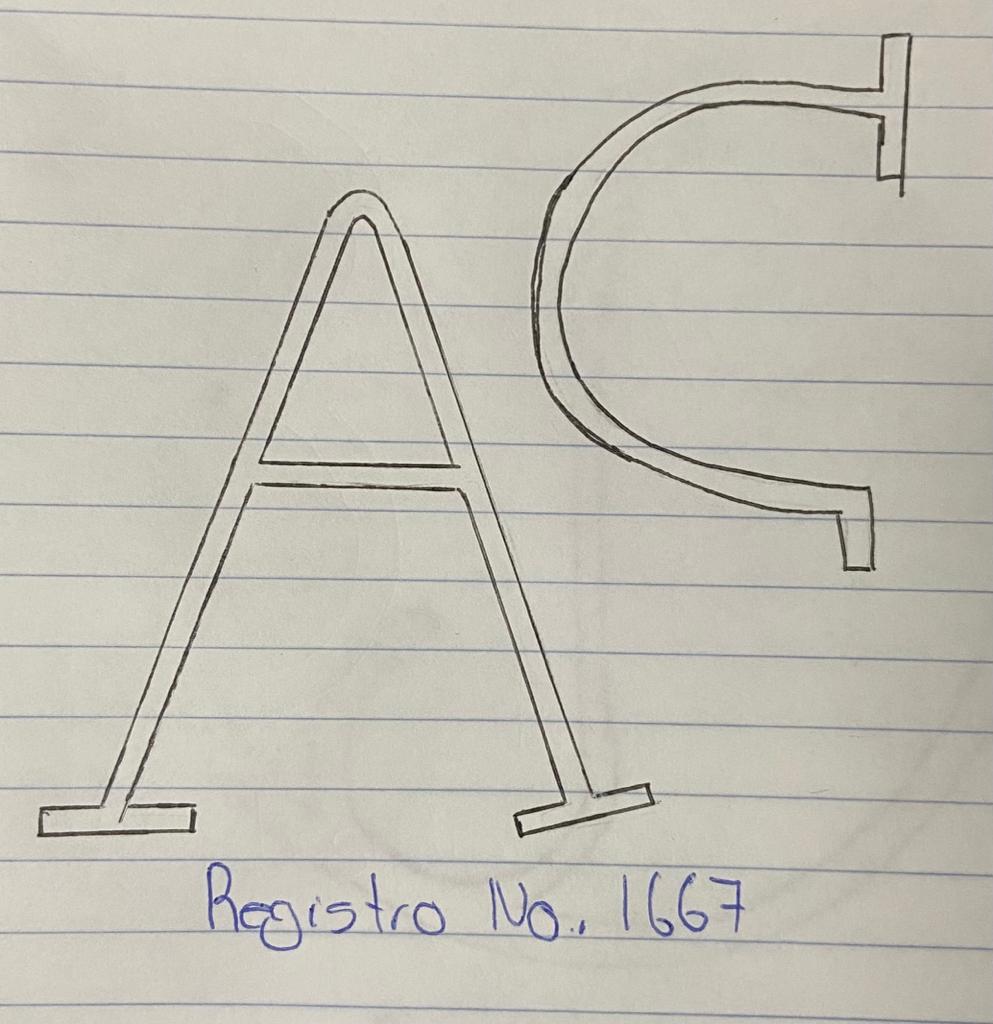 AC
Registro No. 1667